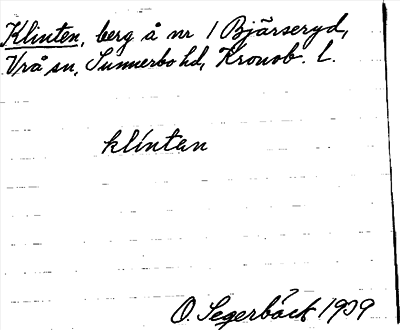 Klinten, berg å nr 1 Bjärseryd,
Vrå sn, Sunnerbo hd, Kronob. l.
klíntan
O. Segerbäck 1939